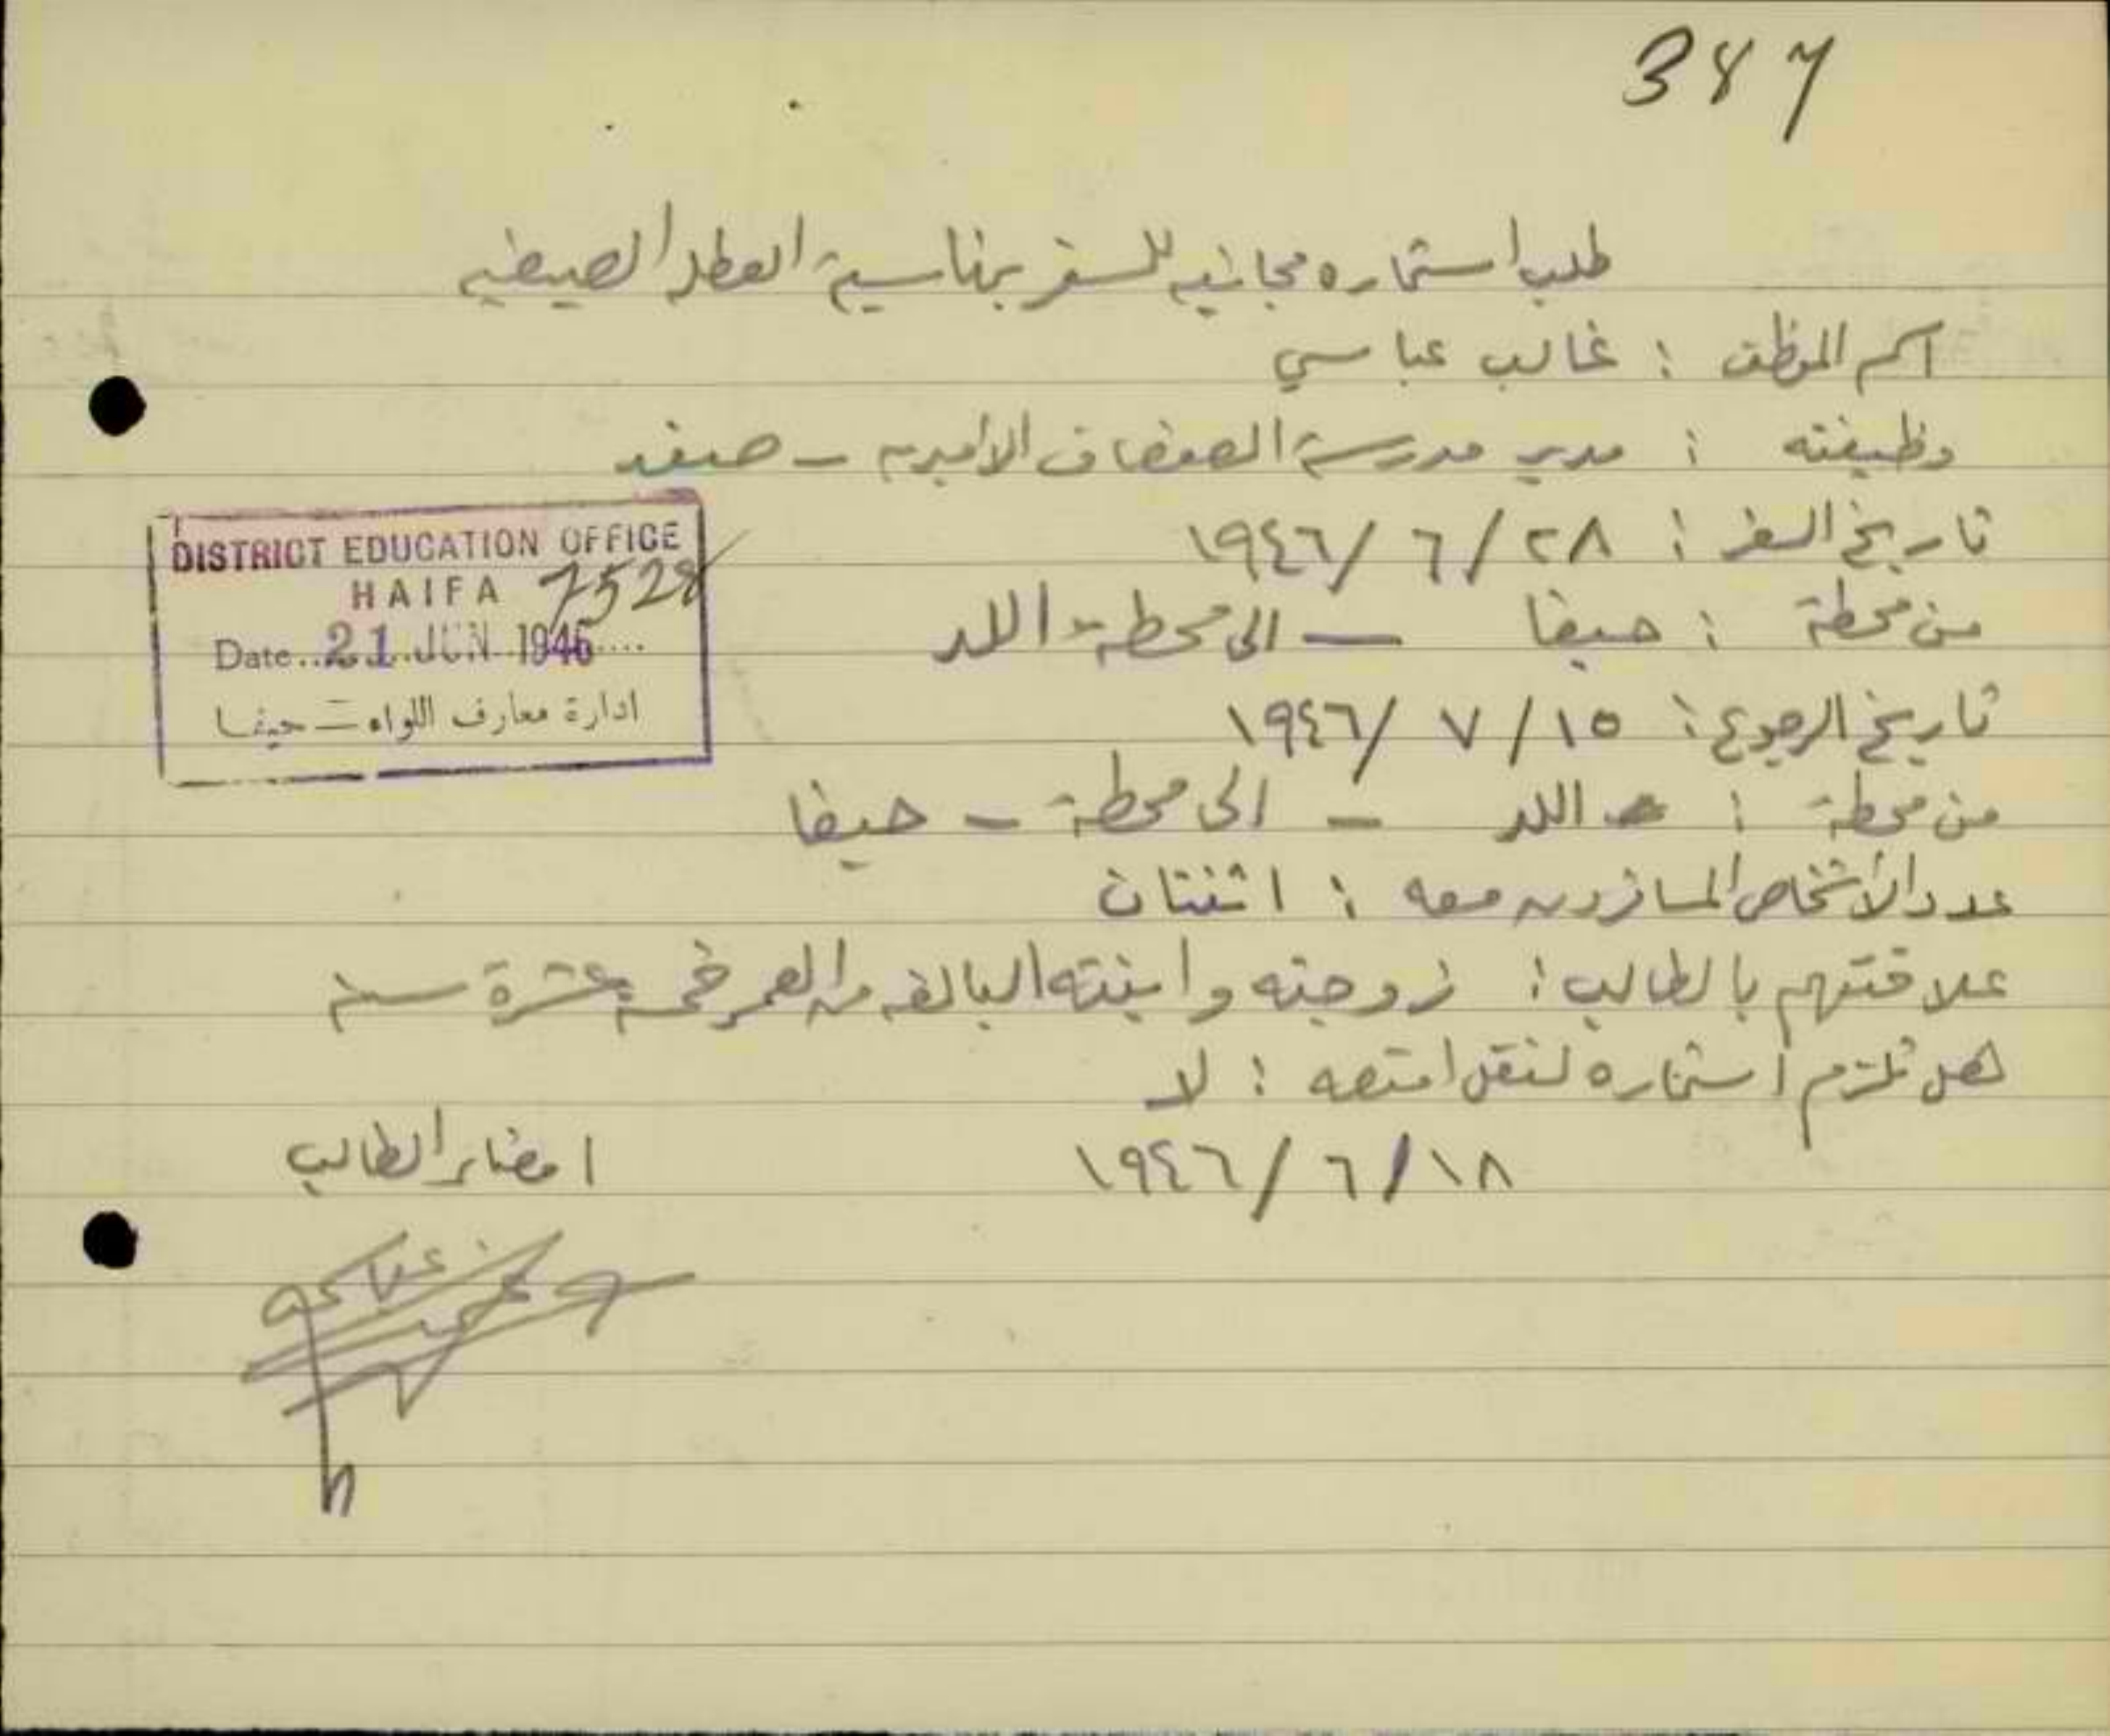 387
طلب استماره مجانيه للسفر بمناسبة العطله الصيفيه
اسم الموظف : غالب عباسي
وظيفته : مدير مدرسة الصفصاف الأميريه – صفد
تاريخ السفر : ٢٨/ ٦ /١٩٤٦
من محطة : حيفا – الى محطة اللد
تاريخ الرجوع : ١٥/ ٧ /١٩٤٦
من محطة : اللد – الى محطة – حيفا
عدد الأشخاص المسافرون معه : اثنتان
علاقتهم بالطالب : زوجته وابنته البالغه من العمر خمسة عشرة سنه
هل تلزم استماره لنقل امتعه : لا
١٨/ ٦ /١٩٤٦
امضاء الطالب
DISTRICT EDUCATION OFFICE
HAIFA 7528
Date..21 JUN 1946....
ادارة معارف اللواء – حيفا